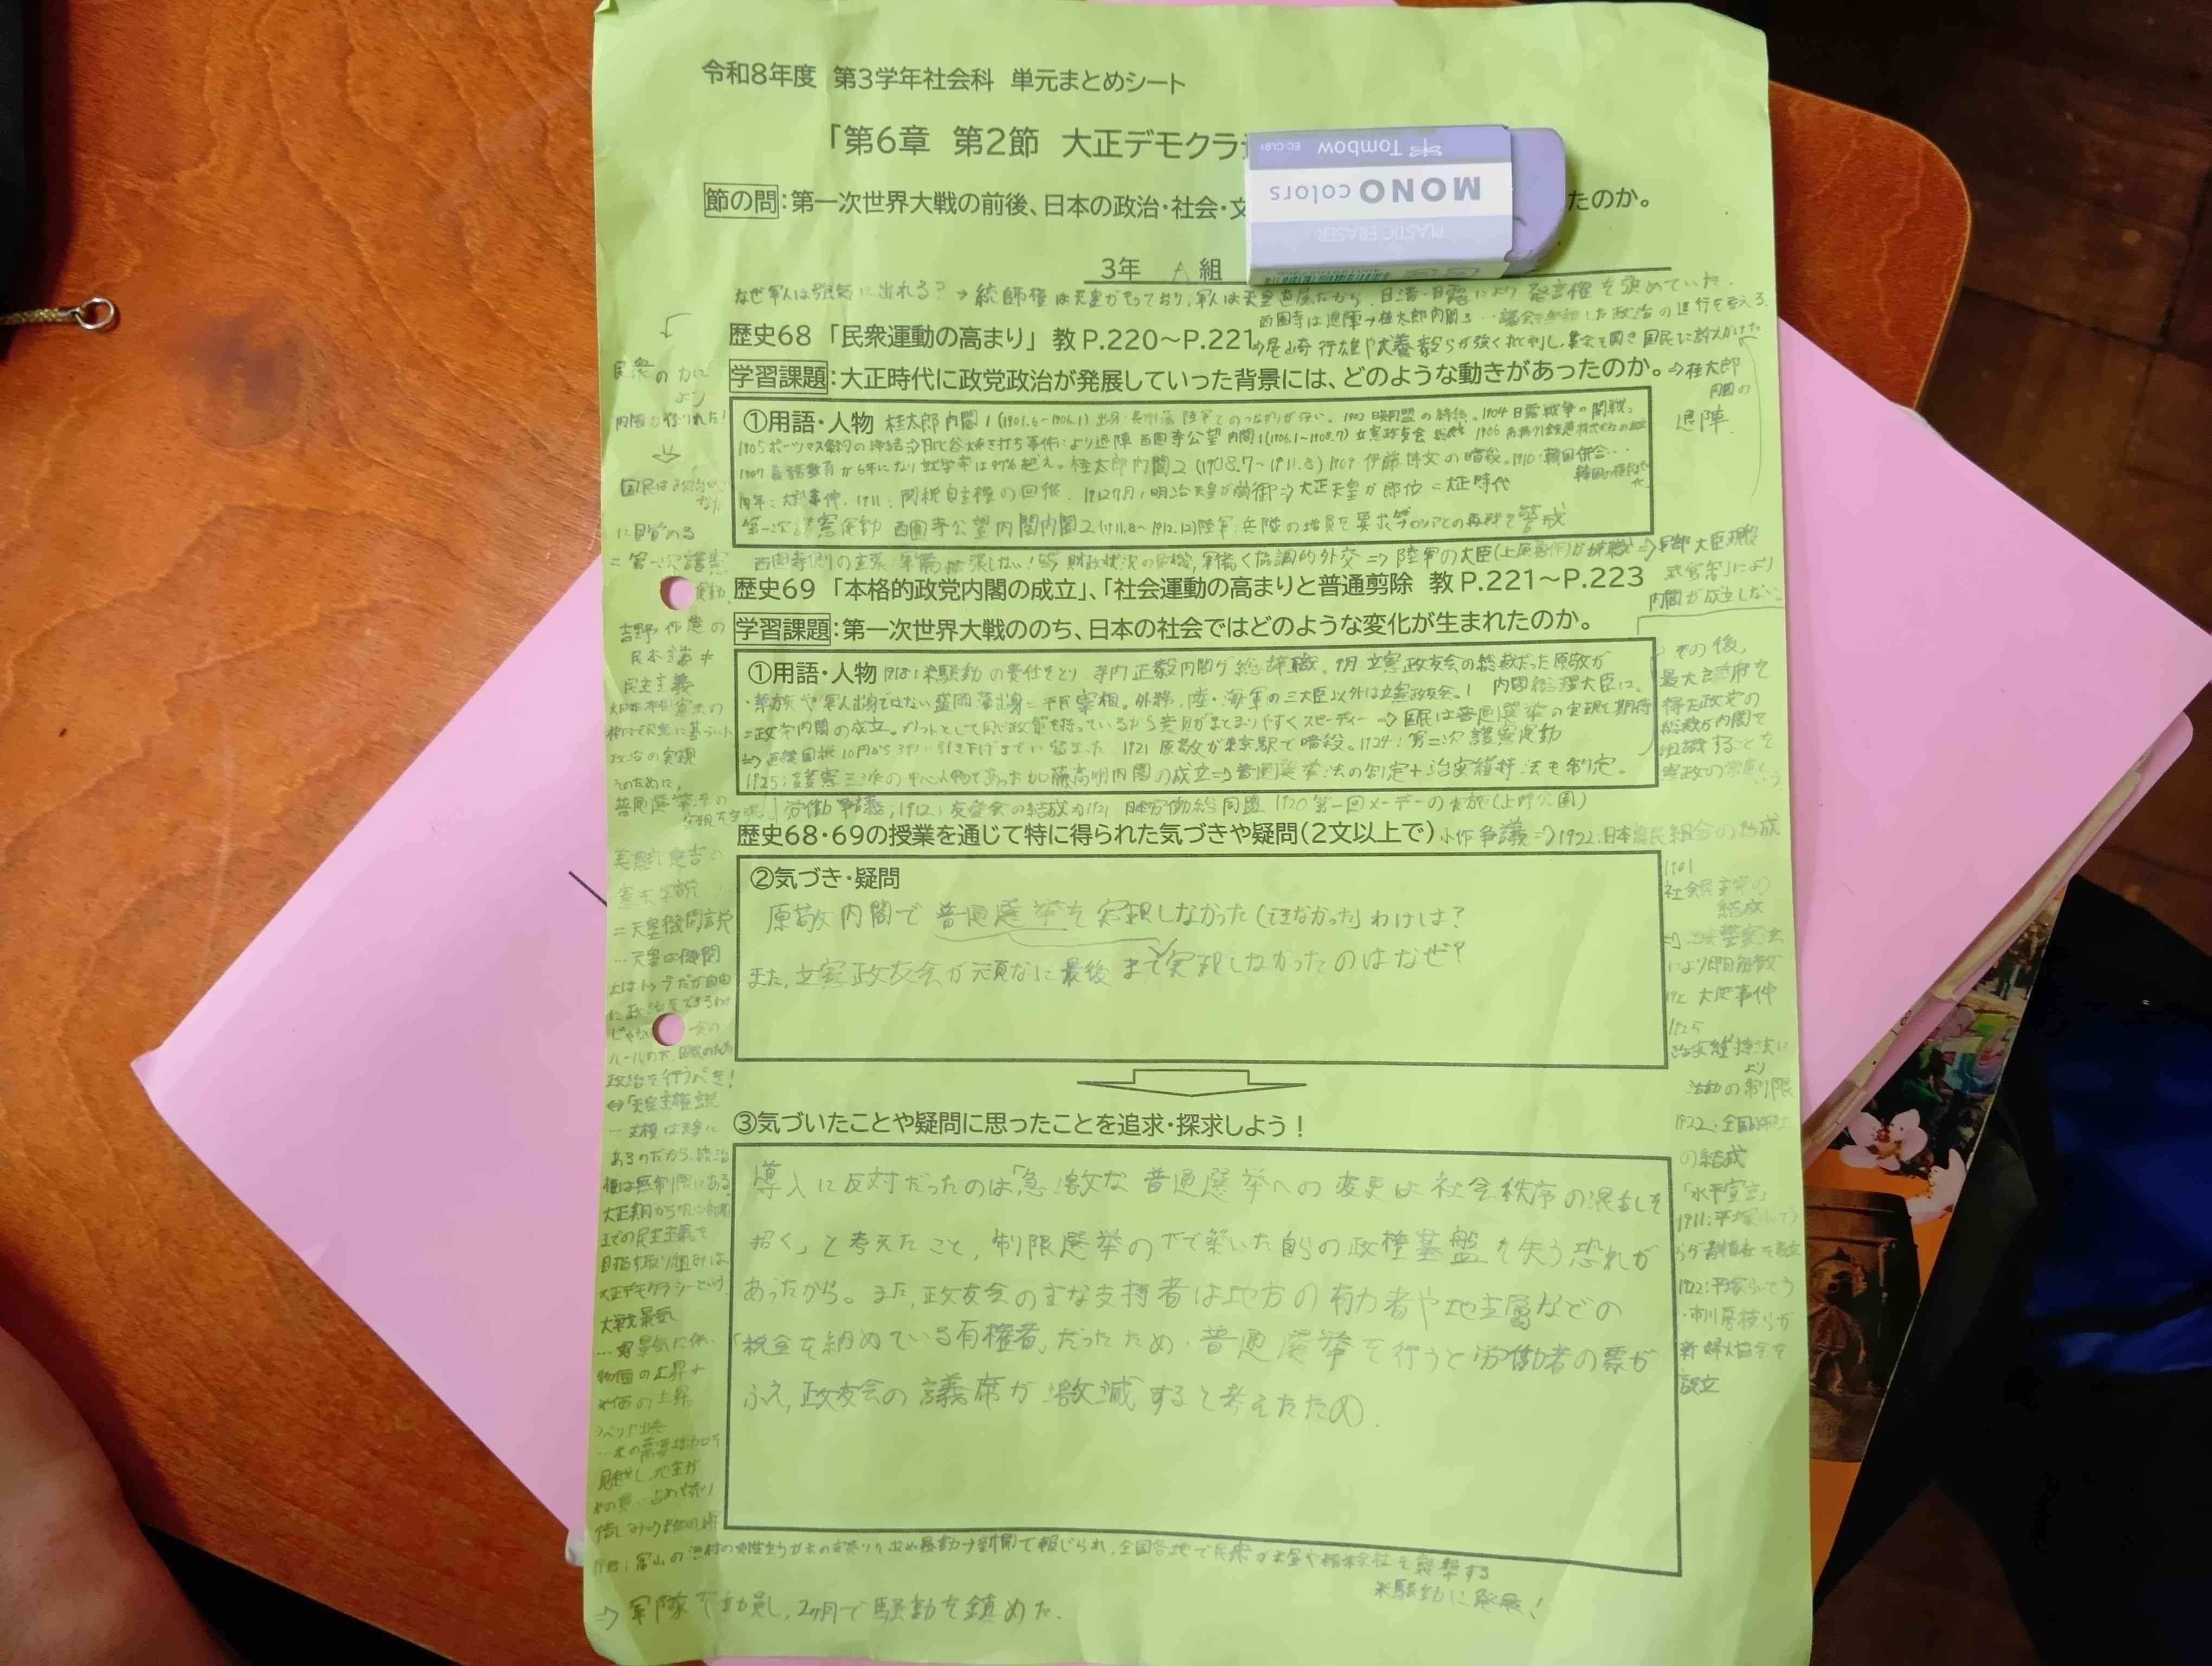 令和8年度 第3学年社会科 単元まとめシート
「第6章 第2節 大正デモクラ
節の問:第一次世界大戦の前後、日本の政治・社会・文
たのか。
Tombow
EC-CL91
MONO colors
PLASTIC ERASER
3年 A 組
なぜ軍人は強気に出れる?→統帥権は天皇がもっており,軍人は天皇直属だから.日清・日露により発言権を強めていた.
西園寺は退陣→桂太郎内閣3…議会を無視した政治の進行を考える.
歴史68 「民衆運動の高まり」 教 P.220～P.221
⇒尾崎行雄や犬養毅らが強く批判し,集会を開き国民に訴えかけた
学習課題:大正時代に政党政治が発展していった背景には、どのような動きがあったのか。
⇒桂太郎
内閣の
退陣
民衆の力に
より
内閣が
①用語・人物 桂太郎内閣1(1901.6~1906.1) 出身:長州藩 陸軍とのつながりが強い。1902 日英同盟の締結。1904 日露戦争の開戦。
1905 ポーツマス条約の締結⇒日比谷焼き打ち事件により退陣 西園寺公望内閣1(1906.1~1908.7) 立憲政友会 総裁 1906 南満州鉄道株式会社の設立
1907 義務教育が6年になり就学率は97%越え。桂太郎内閣2(1908.7~1911.8) 1909 伊藤博文の暗殺。1910 韓国併合…
韓国の植民地化
同年:大逆事件. 1911:関税自主権の回復. 1912 7月:明治天皇が崩御⇒大正天皇が即位=大正時代
第一次護憲運動 西園寺公望内閣内閣2(1911.8~1912.12)陸軍:兵隊の増員を要求 ロシアとの再戦を警戒
国民は政治の
に目覚める
=第一次護憲
運動.
西園寺側の主張:軍備拡張しない! 財政状況の危機,軍備<協調的外交⇒陸軍の大臣(上原勇作)が辞職⇒「軍部大臣現役
武官制」により
内閣が成立しない
歴史69 「本格的政党内閣の成立」、「社会運動の高まりと普通剪除 教 P.221～P.223
学習課題:第一次世界大戦ののち、日本の社会ではどのような変化が生まれたのか。
吉野作造の
民本主義≠
民主主義
大日本帝国憲法の
政治の実現
そのために,
普通選挙
①用語・人物 1918:米騒動の責任をとり 寺内正毅内閣が総辞職。9月 立憲政友会の総裁だった原敬が
・華族や軍人出身ではない盛岡藩出身=平民宰相。外務,陸・海軍の三大臣以外は立憲政友会。 内閣総理大臣に。
=政党内閣の成立。メリットとして同じ政策を持っているから意見がまとまりやすくスピーディー⇒国民は普通選挙の実現を期待
⇒直接国税10円から3円に引き下げまでに留まった 1921 原敬が東京駅で暗殺。1924:第二次護憲運動
1925:護憲三派の中心人物であった加藤高明内閣の成立⇒普通選挙法の制定+治安維持法も制定。
その後,
最大議席を
得た政党の
総裁が内閣を
組織することを
憲政の常道と
いう
労働争議, 1912:友愛会の結成⇒1921 日本労働総同盟 1920 第一回メーデーの実施(上野公園)
歴史68・69の授業を通じて特に得られた気づきや疑問(2文以上で)
小作争議⇒1922:日本農民組合の結成
②気づき・疑問
原敬内閣で普通選挙を実現しなかった(できなかった)わけは?
また,立憲政友会が頑なに最後まで実現しなかったのはなぜ?
美濃部達吉の
憲法学説
=天皇機関説
…天皇は機関
上はトップだが自由
に政治をできるわけ
じゃない
政治を行うべき!
⇔「天皇主権説
1901
社会民主党の
結成
により即日解散
大逆事件
1925
治安維持法に
より
活動の制限
1922:全国水平社
の結成
「水平宣言」
1911:平塚らいてう
らが青鞜社を設立
1922:平塚らいてう
・市川房枝らが
新婦人協会を
設立
③気づいたことや疑問に思ったことを追求・探求しよう!
導入に反対だったのは「急激な普通選挙への変更は社会秩序の混乱を
招く」と考えたこと,制限選挙の下で築いた自らの政権基盤を失う恐れが
あったから。また,政友会の主な支持者は地方の有力者や地主層などの
「税金を納めている有権者」だったため,普通選挙を行うと労働者の票が
ふえ,政友会の議席が激減すると考えたため.
権は無制限にある
大正期から
までの民主主義を
目指す取り組みは
大正デモクラシーという
大戦景気
…好景気に伴い
物価の上昇+
米価の上昇
シベリア出兵
漁村の女性達が米の安売りを求め暴動→新聞で報じられ,全国各地で民衆が米屋や精米会社を襲撃する
米騒動に発展!
⇒軍隊を動員し,2ヶ月で騒動を鎮めた.